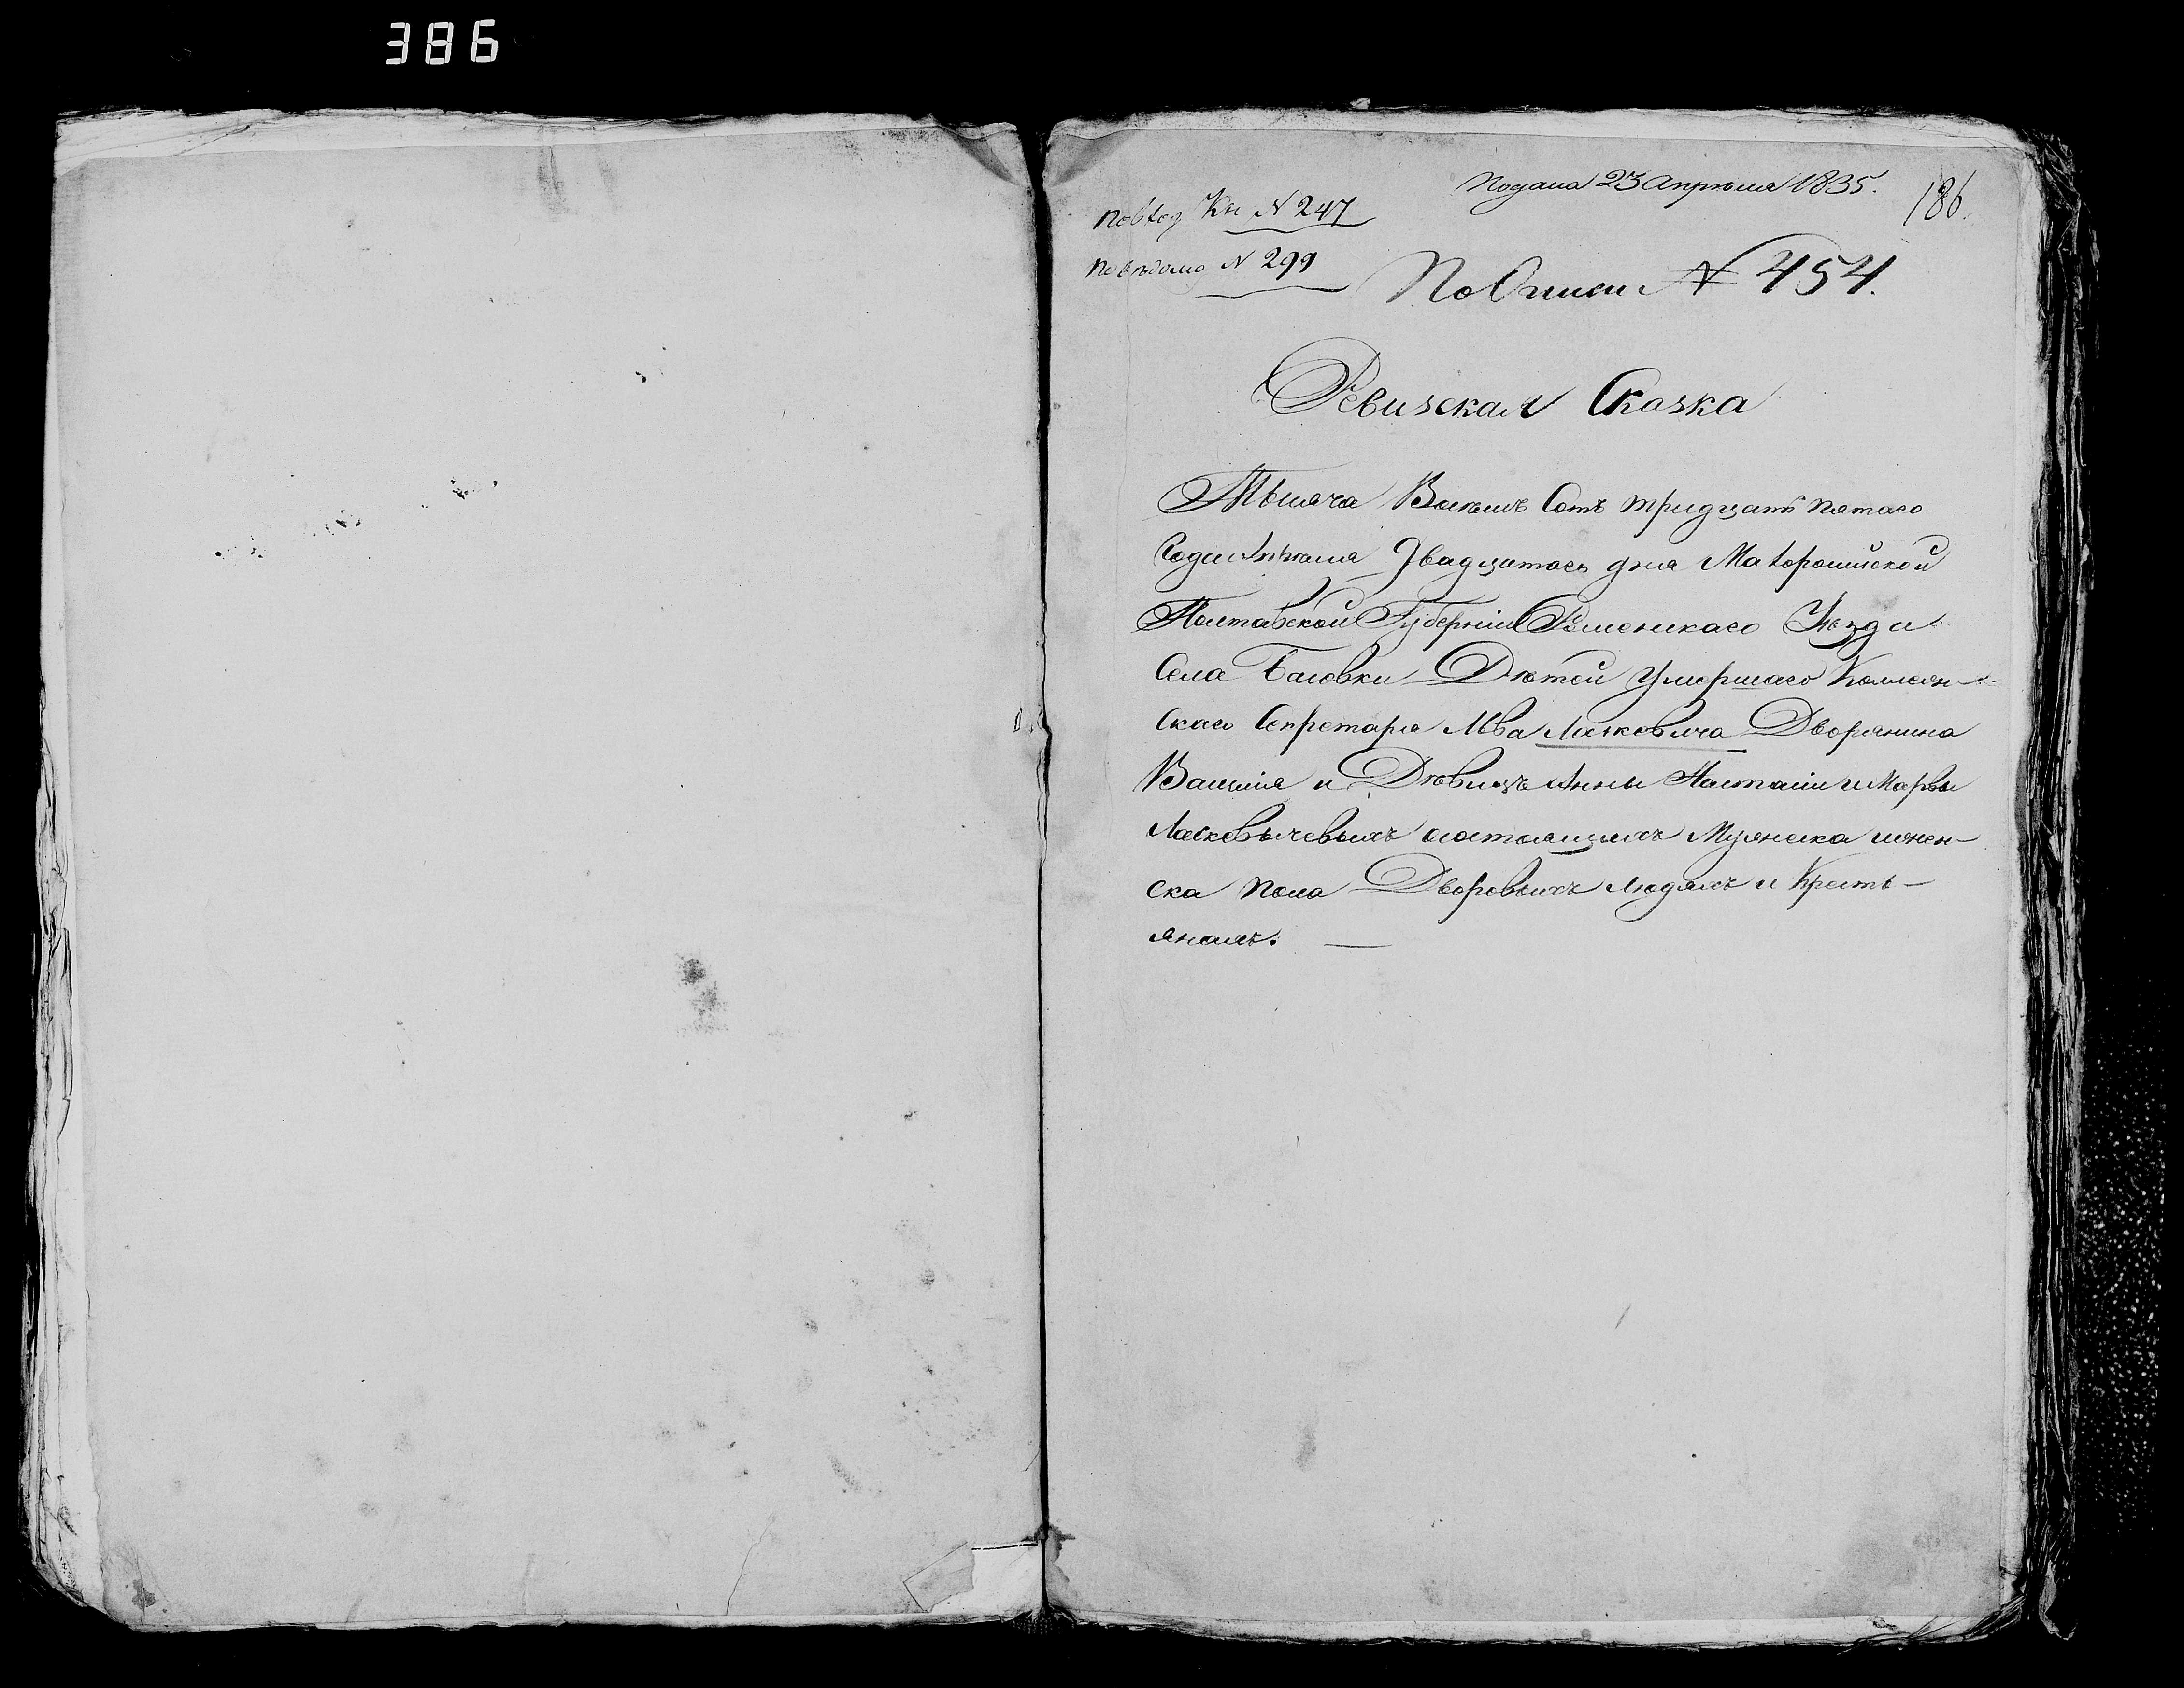 386
Подана 23 Апрѣля 1835.
186.
По вход Кн N 247
По вѣдомо N 299
По Описи N 454.
Ревизская Сказка
Тысяча Восемъ Сотъ тридцать пятаго
Года Апрѣля Двадцатаго дня Малороссийской
Полтавской Губерніи Роменскаго Уѣзда
Села Басовки Дѣтей Умершаго Коллеж-
скаго Секретаря Льва Ласкевича Дворянина
Василія и Дѣвицъ Анны Наталіи и Марѳы
Ласкевичевыхъ состоящихъ Мужеска и женс-
ска пола Дворовыхъ людяхъ и Кресть-
янахъ.